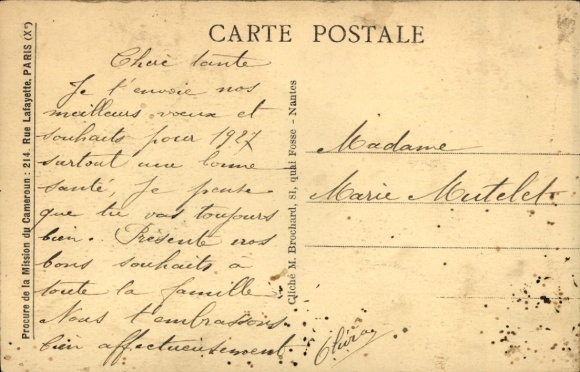 CARTE POSTALE
Procure de la Mission du Cameroun : 214, Rue Lafayette, PARIS (Xᵉ)
Cheré tante
Je t'envoie nos
meilleurs vœux et
souhaits pour 1927
surtout une bonne
santé, Je pense
que tu vas toujours
bien. Présente nos
bons souhaits à
toute la famille
Nous t'embrassons
bien affectueusement
Cliché M. Brochard, 81, quai Fosse - Nantes
Madame
Marie Mutelet